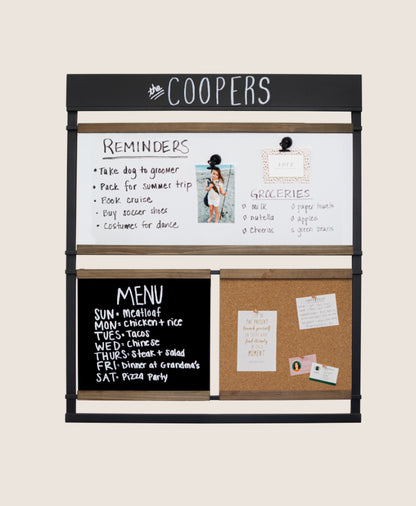 the COOPERS
REMINDERS
• Take dog to groomer
• Pack for summer trip
• Book cruise
- Buy soccer shoes
• Costumes for dance
LOVE
GROCERIES
o milk
o nutella
o Cheerios
o paper towels
o apples
o green beans
MENU
SUN• Meatloaf
MON: Chicken + rice
TUES• Tacos
WED: Chinese
THURS: Steak + Salad
FRI: Dinner at Grandma's
SAT• Pizza Party
MOMENT